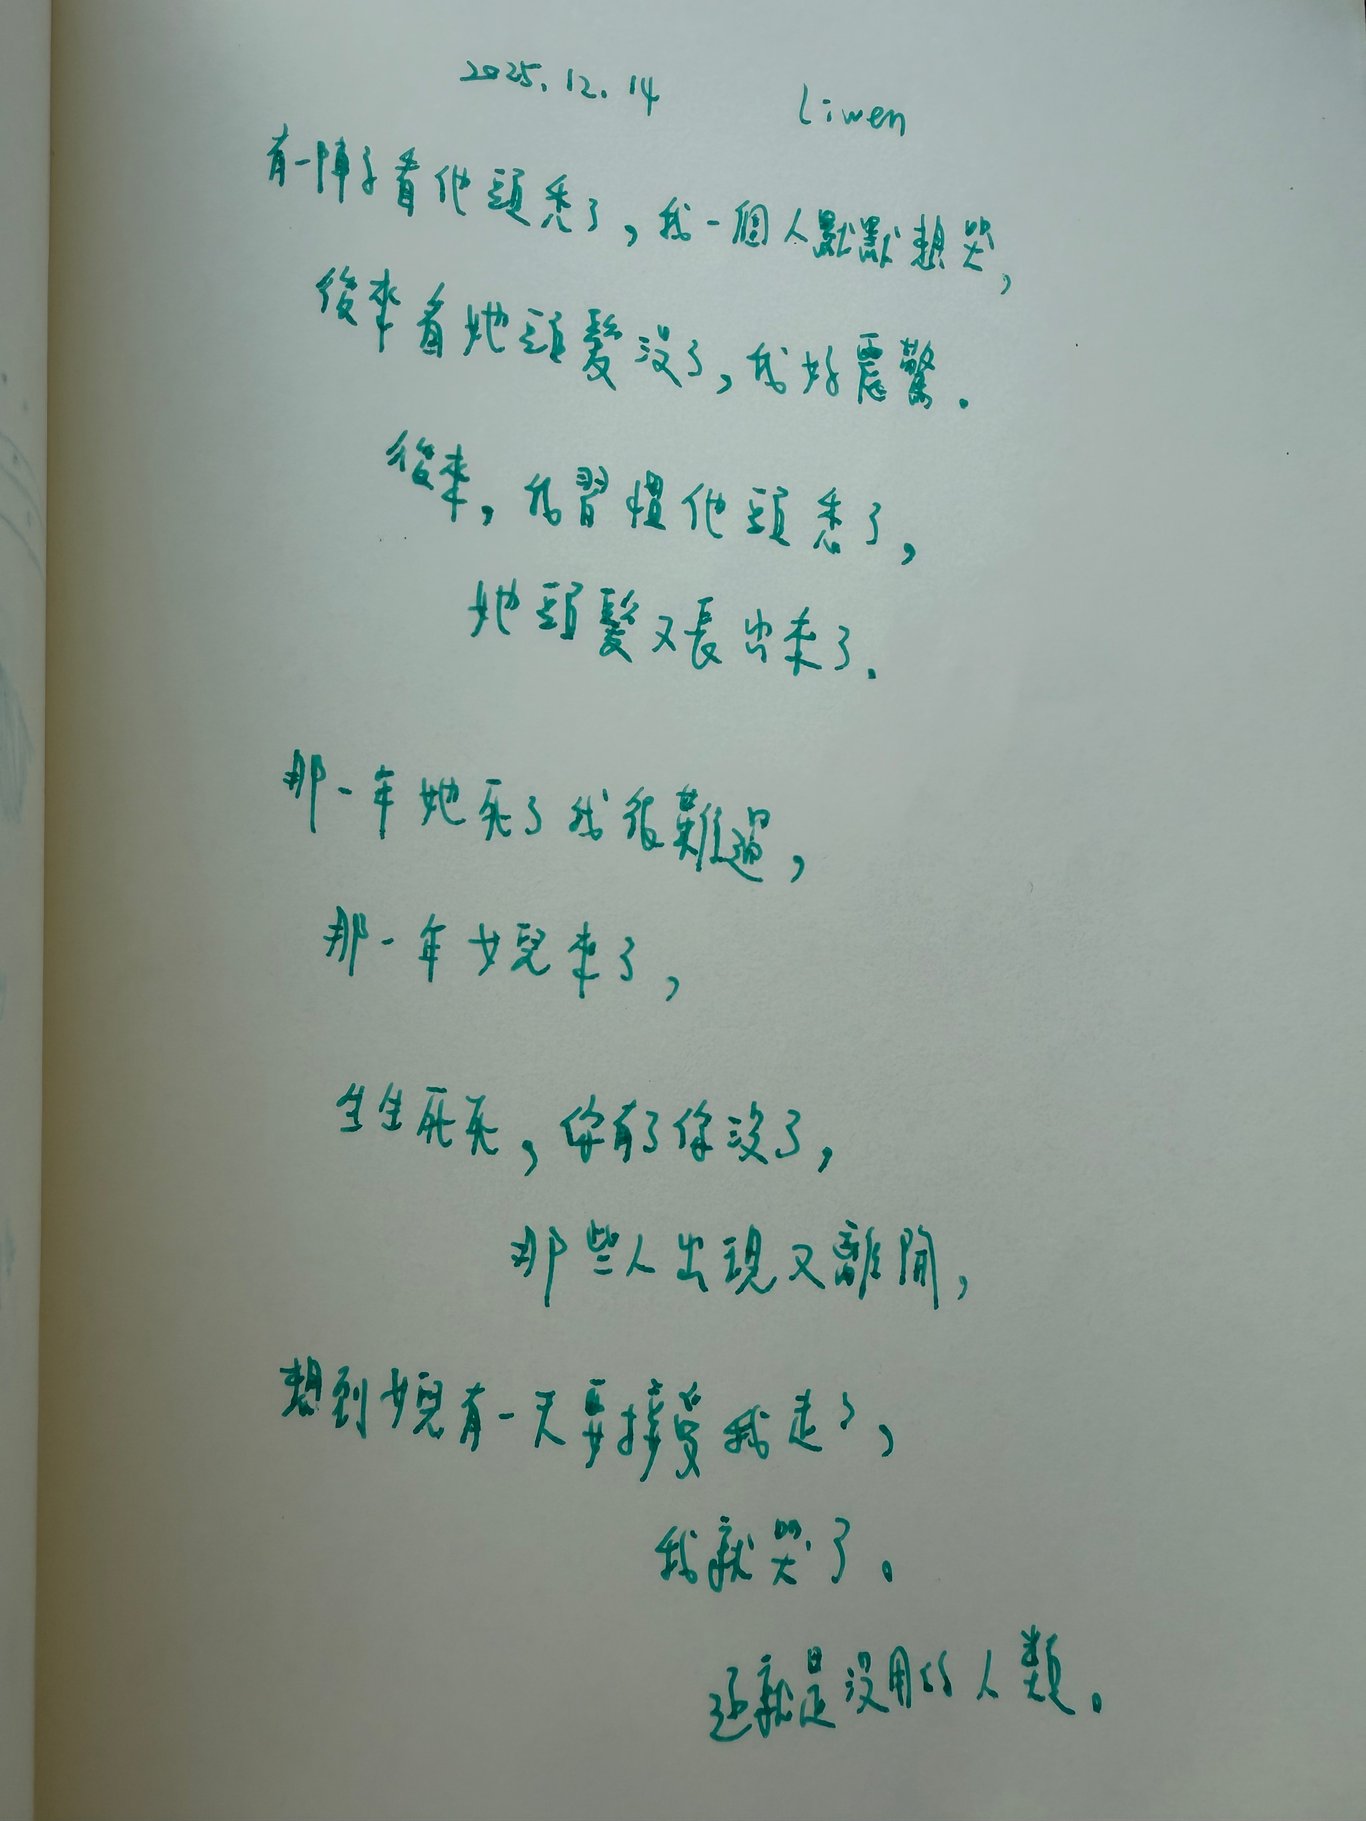 2025.12.14 Liwen
有一陣子看他頭禿了,我一個人默默想哭,
後來看她頭髮沒了,我好震驚.
後來,我習慣他頭禿了,
她頭髮又長出來了.
那一年她死了我很難過,
那一年女兒來了,
生生死死,你有了你沒了,
那些人出現又離開,
想到女兒有一天要接受我走了,
我就哭了.
這就是沒用的人類.